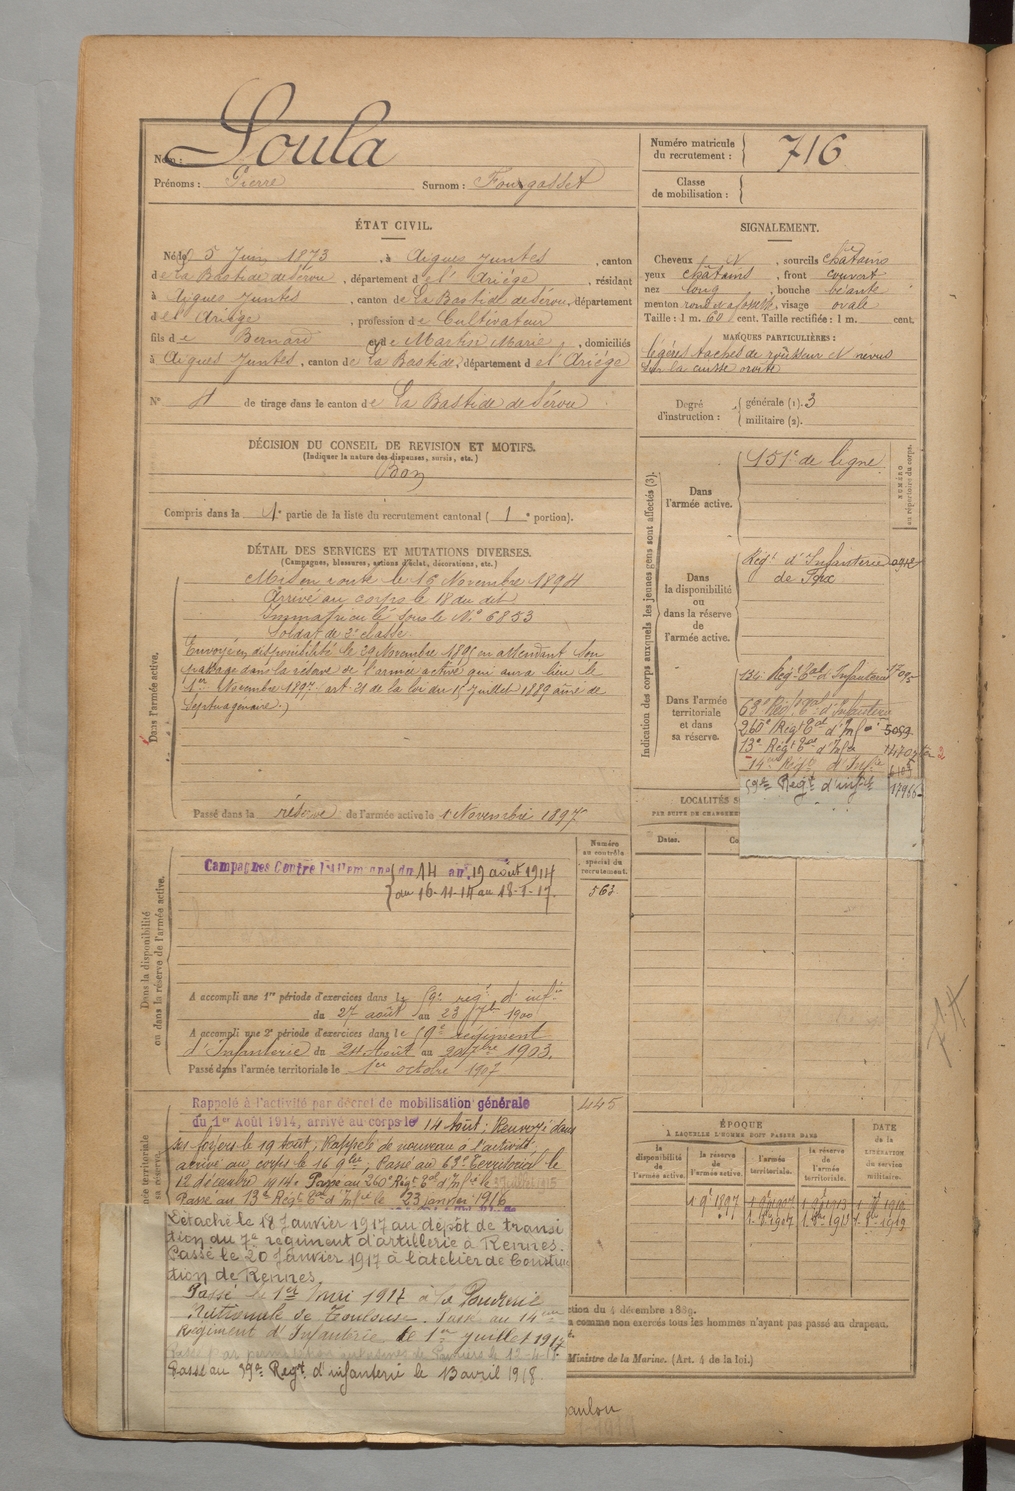 Nom : Soula
Prénoms : Pierre Surnom : Fourgasset
Numéro matricule
du recrutement : 716
Classe
de mobilisation :
ÉTAT CIVIL.
Né le 5 Juin 1873, à Aigues Juntes, canton
de La Bastide de Sérou, département de l'Ariège, résidant
à Aigues Juntes, canton de La Bastide de Sérou, département
de l'Ariège, profession de Cultivateur
fils de Bernard et de Marie, domiciliés
à Aigues Juntes, canton de La Bastide, département de l'Ariège
N° de tirage dans le canton de La Bastide de Sérou
SIGNALEMENT.
Cheveux N, sourcils châtains
yeux châtains, front couvert
nez long, bouche béante
menton rond, visage ovale
Taille : 1 m. 60 cent. Taille rectifiée : 1 m. cent.
MARQUES PARTICULIÈRES :
légères taches de rousseur N nevus
sur la cuisse droite
Degré
d'instruction :
générale (1). 3
militaire (2).
DÉCISION DU CONSEIL DE REVISION ET MOTIFS.
(Indiquer la nature des dispenses, sursis, etc.)
Bon
Compris dans la 1e partie de la liste du recrutement cantonal ( 1e portion).
DÉTAIL DES SERVICES ET MUTATIONS DIVERSES.
(Campagnes, blessures, actions d'éclat, décorations, etc.)
Dans l'armée active.
Mis en route le 16 Novembre 1894
Arrivé au corps le 18 du dit
Immatriculé sous le N° 6853
Soldat de 2e classe.
Envoyé en disponibilité le 29 Novembre 1895 en attendant son
passage dans la réserve de l'armée active qui aura lieu le
1er Novembre 1897. art. 21 de la loi du 15 Juillet 1889 aîné de
Septuagénaire.)
Passé dans la réserve de l'armée active le 1 Novembre 1897
Indication des corps auxquels les jeunes gens sont affectés (3).
NUMÉRO
au répertoire du corps.
Dans
l'armée active.
151e de ligne
Dans
la disponibilité
ou
dans la réserve
de
l'armée active.
Régt d'Infanterie
de Foix
Dans l'armée
territoriale
et dans
sa réserve.
134e Régt Tal d'Infanterie
63e Régt Tal d'Infanterie
260e Régt Tal d'Infie 5099
13e Régt Tal d'Infie
14e Régt d'Infie
59e Regt d'infie 17966
LOCALITÉS
PAR SUITE DE CHANGEME
Dates.
Dans la disponibilité
ou dans la réserve de l'armée active.
Numéro
au contrôle
spécial du
recrutement.
563
Campagnes Contre l'Allemagne du 14 au 19 août 1914
du 16-11-14 au 18-1-17.
A accompli une 1re période d'exercices dans le 59e régt d'infie
du 27 août au 23 7bre 1900
A accompli une 2e période d'exercices dans le 59e régiment
d'Infanterie du 24 Août au 20 7bre 1903.
Passé dans l'armée territoriale le 1er octobre 1907
Rappelé à l'activité par décret de mobilisation générale
du 1er Août 1914, arrivé au corps le 14 Août. Renvoyé dans
ses foyers le 19 Août, Rappelé de nouveau à l'activité
arrivé au corps le 16 9bre, Passé au 63e Territorial le
12 décembre 1914. Passé au 260e Régt Tal d'Infie le 3 juillet 1915
Passé au 13e Régt Tal d'Infie le 23 janvier 1916
445
Détaché le 18 Janvier 1917 au dépôt de transi
tion du 7e régiment d'artillerie à Rennes.
Passé le 20 Janvier 1917 à l'atelier de Constru
tion de Rennes.
Passé le 1er mai 1917 à la Poudrerie
Nationale de Toulouse. Passé au 14eme
Régiment d'Infanterie le 1er juillet 1917
Passé au 59e Regt d'infanterie le 13 avril 1918.
ÉPOQUE
À LAQUELLE L'HOMME DOIT PASSER DANS
DATE
de la
LIBÉRATION
du service
militaire.
la
disponibilité
de
l'armée active.
la réserve
de
l'armée active.
l'armée
territoriale.
la réserve
de
l'armée
territoriale.
1 9e 1897
ction du 4 décembre 1889.
s comme non exercés tous les hommes n'ayant pas passé au drapeau.
Ministre de la Marine. (Art. 4 de la loi.)